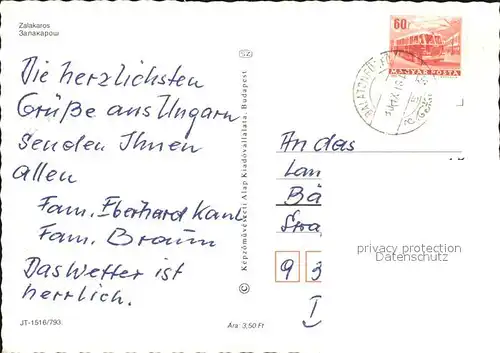 Zalakaros
Залакарош
SZ
60f
MAGYAR POSTA
Die herzlichsten
Grüße aus Ungarn
senden Ihnen
allen
Fam. Eberhard
Fam. Braun
Das Wetter ist
herrlich.
An das
Lan
Bä
Stra
privacy protection
Datenschutz
9 3
© Képzőművészeti Alap Kiadóvállalata, Budapest
JT-1516/793.
Ára: 3,50 Ft